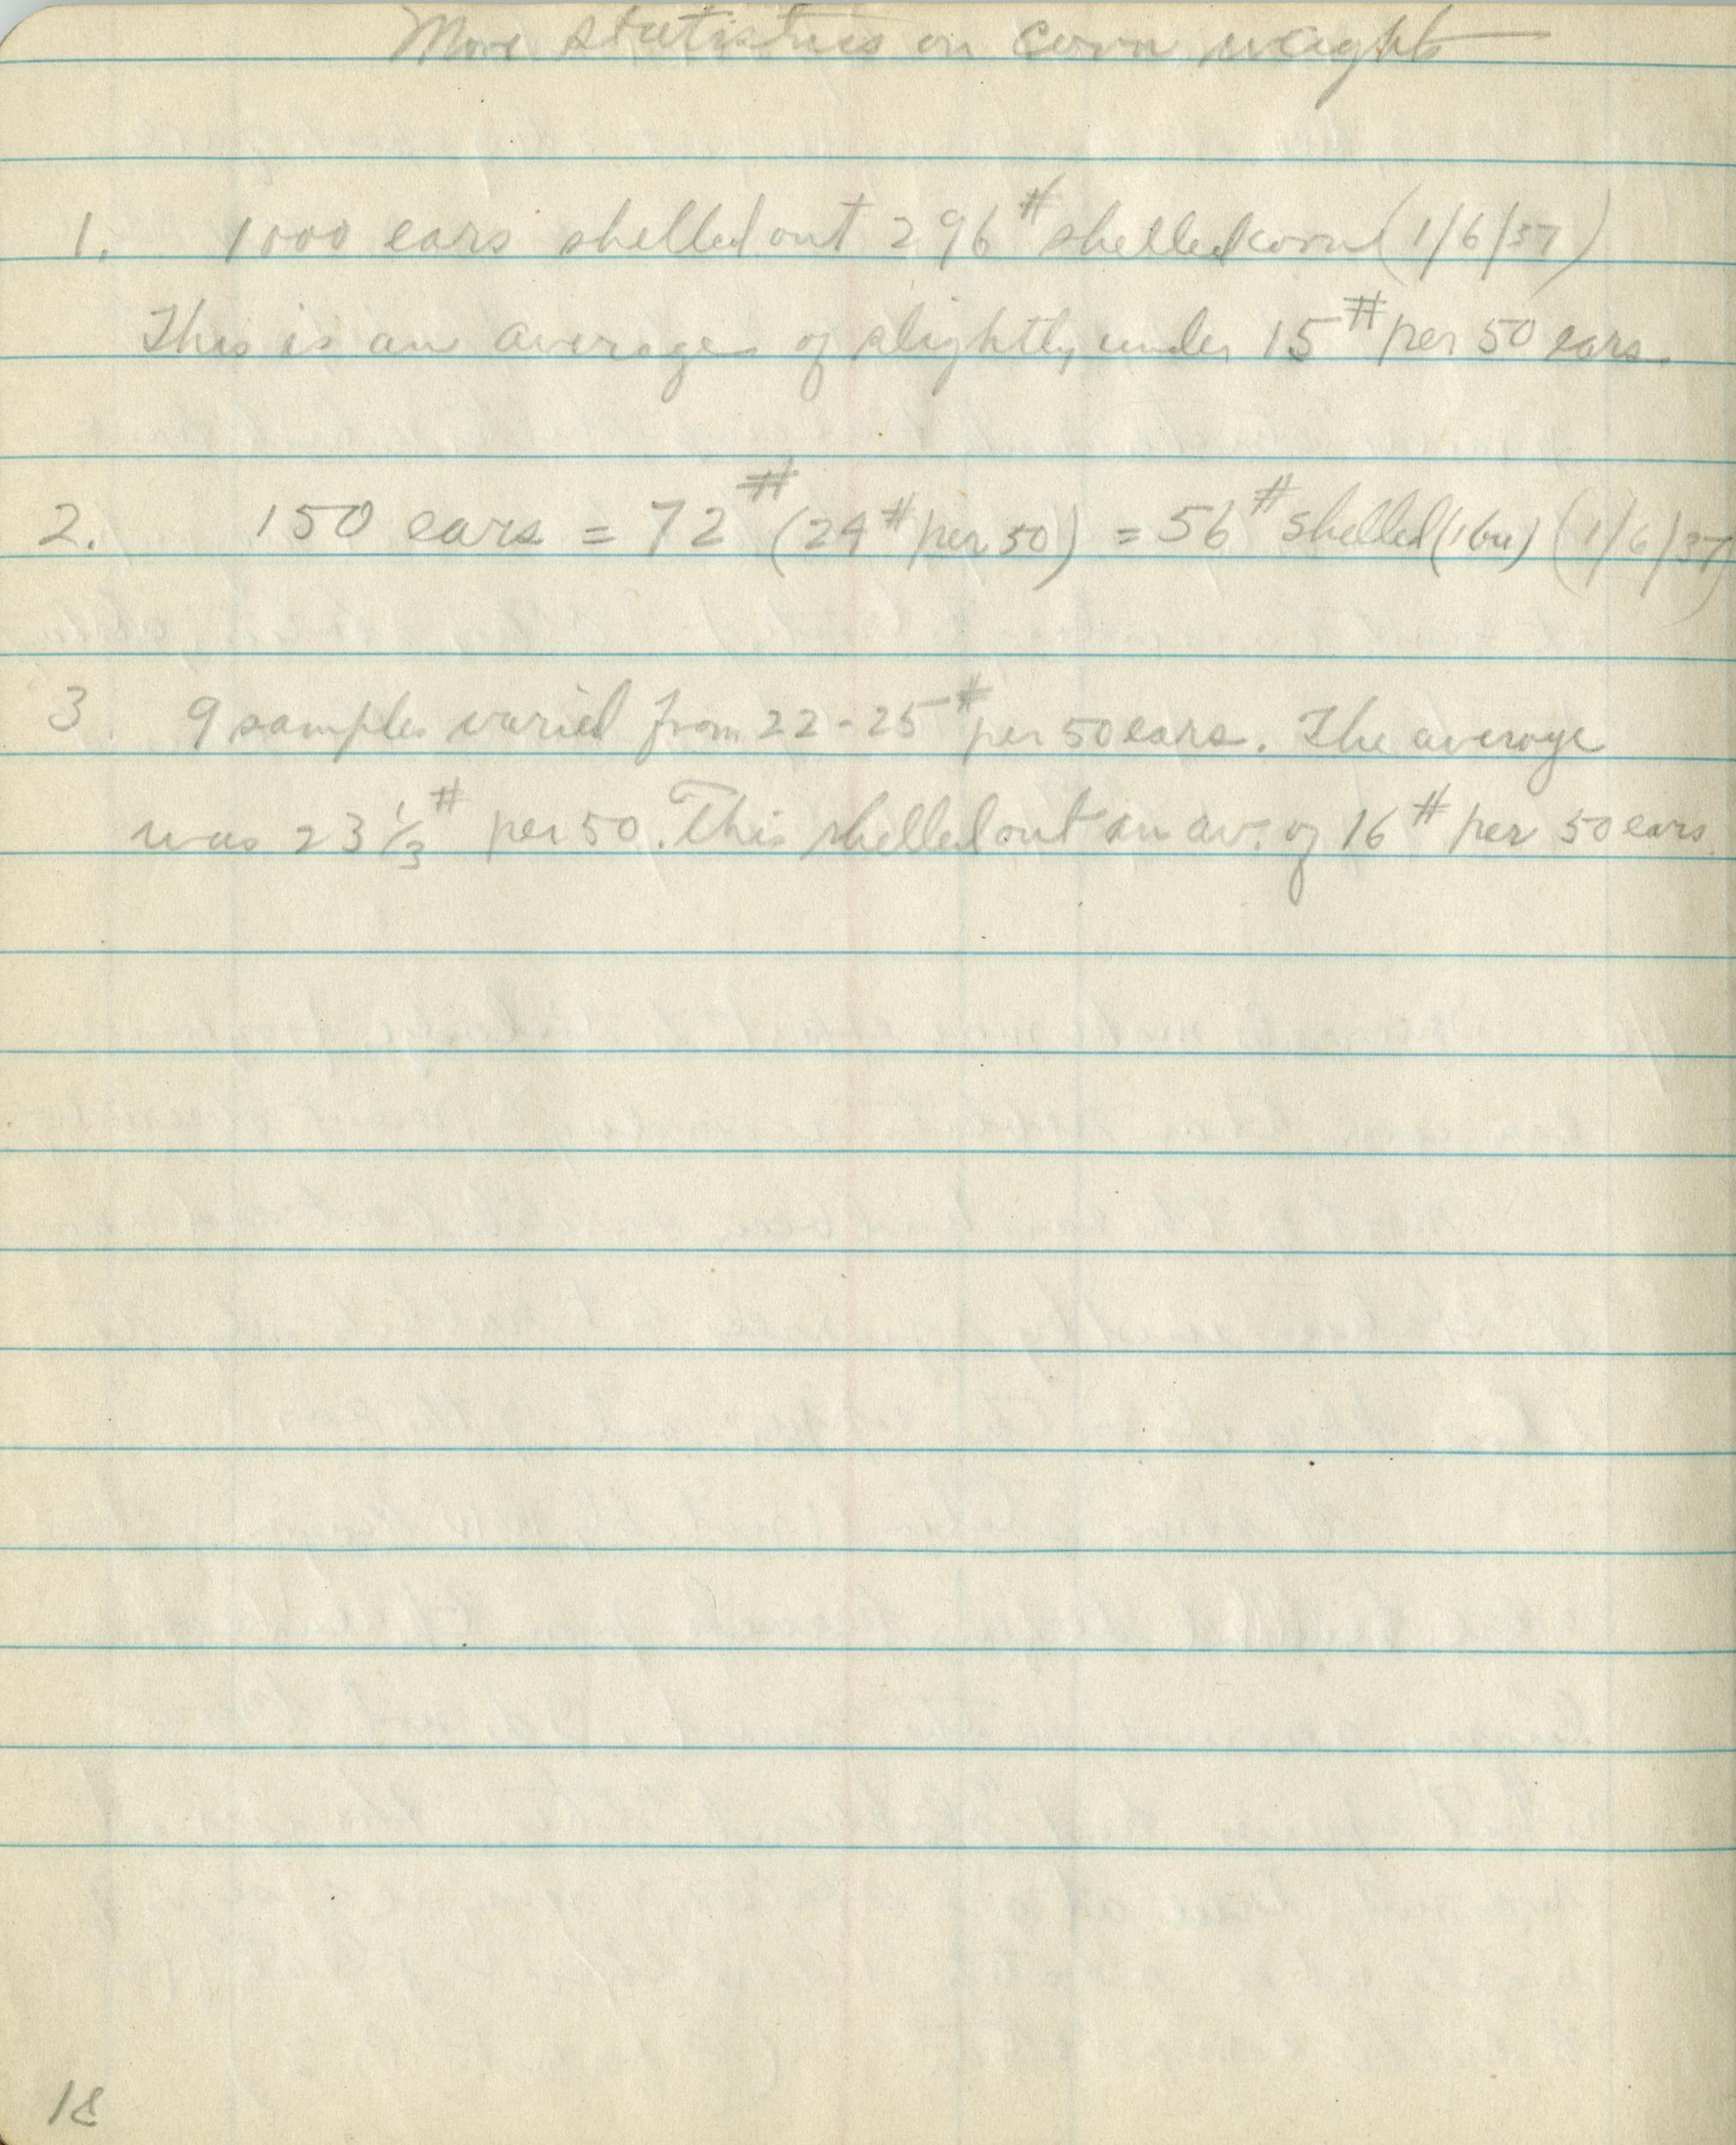 More statistics on corn weight
1. 1000 ears shelled out 296# shelled corn (1/6/37)
This is an average of slightly under 15# per 50 ears.
2. 150 ears = 72# (24# per 50) = 56# shelled (1 bu) (1/6/37)
3 9 samples varied from 22-25# per 50 ears. The average
was 23 1/3# per 50. This shelled out an av. of 16# per 50 ears.
18